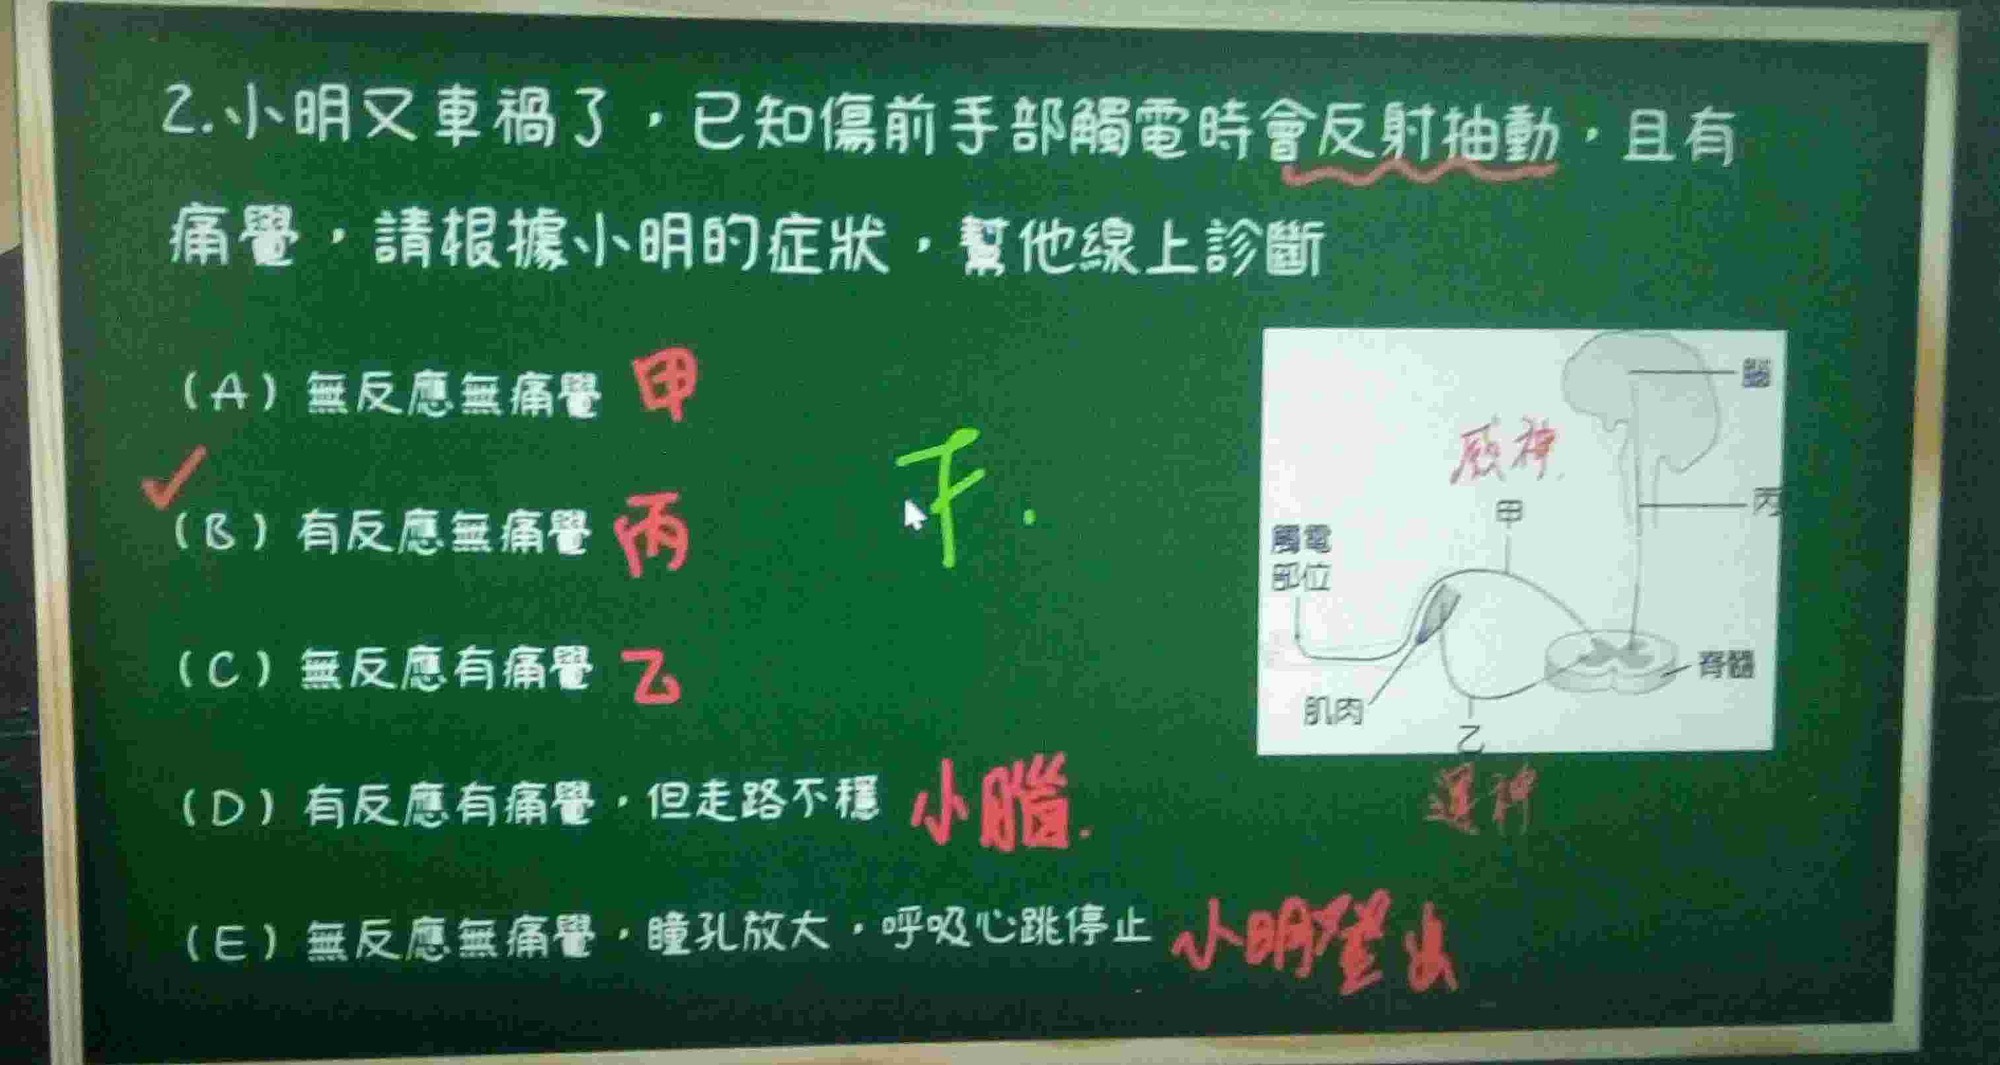 2.小明又車禍了，已知傷前手部觸電時會反射抽動，且有
痛覺，請根據小明的症狀，幫他線上診斷
(A) 無反應無痛覺 甲
(B) 有反應無痛覺 丙
(C) 無反應有痛覺 乙
(D) 有反應有痛覺，但走路不穩 小腦.
(E) 無反應無痛覺，瞳孔放大，呼吸心跳停止 小明登出
腦
感神
甲
丙
觸電
部位
脊髓
肌肉
乙
運神